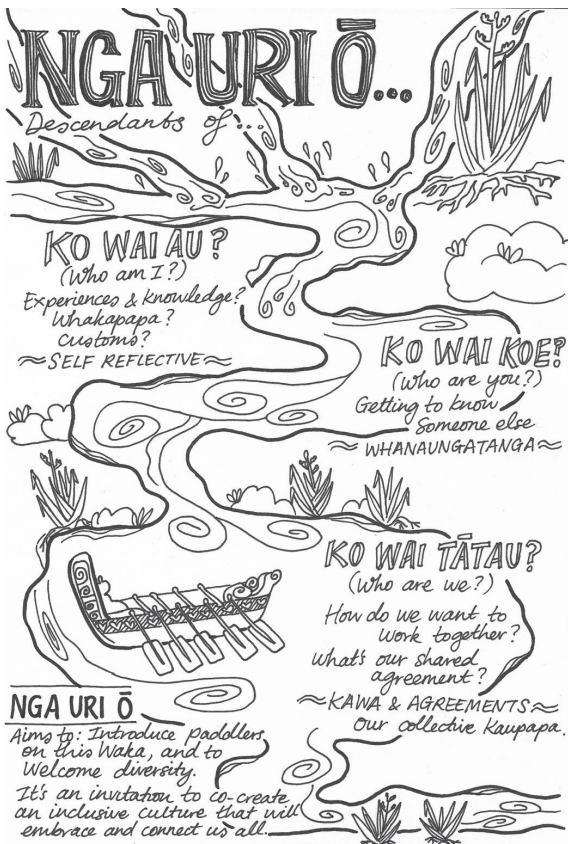 NGA URI Ō...
Descendants of...
KO WAI AU?
(Who am I?)
Experiences & Knowledge?
Whakapapa?
Customs?
≈SELF REFLECTIVE≈
KO WAI KOE?
(Who are you?)
Getting to know
Someone else
≈WHANAUNGATANGA≈
KO WAI TĀTAU?
(Who are we?)
How do we want to
Work together?
What's our shared
agreement?
≈KAWA & AGREEMENTS≈
Our collective Kaupapa.
NGA URI Ō
Aims to: Introduce Paddlers
on this Waka, and to
Welcome diversity.
It's an invitation to co-create
an inclusive culture that will
embrace and connect us all.